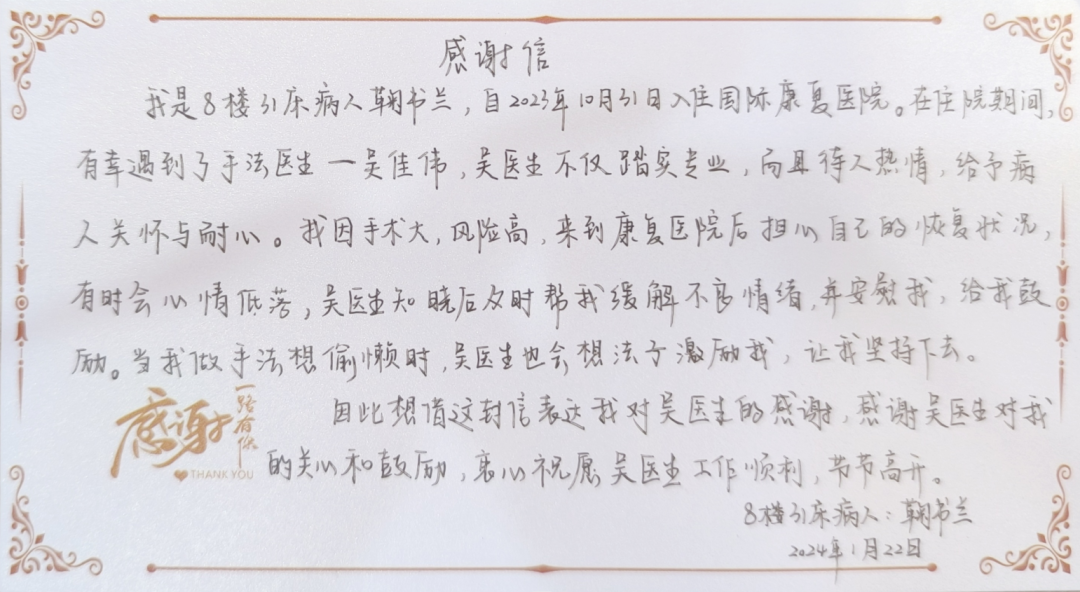 感谢信
我是8楼31床病人鞠书兰，自2023年10月31日入住国际康复医院。在住院期间，
有幸遇到了手法医生—吴佳伟，吴医生不仅踏实专业，而且待人热情，给予病
人关怀与耐心。我因手术大，风险高，来到康复医院后担心自己的恢复状况，
有时会心情低落，吴医生知晓后及时帮我缓解不良情绪，并安慰我，给我鼓
励。当我做手法想偷懒时，吴医生也会想法子激励我，让我坚持下去。
因此想借这封信表达我对吴医生的感谢，感谢吴医生对我
的关心和鼓励，衷心祝愿吴医生工作顺利，节节高升。
感谢 一路有你
THANK YOU
8楼31床病人：鞠书兰
2024年1月22日